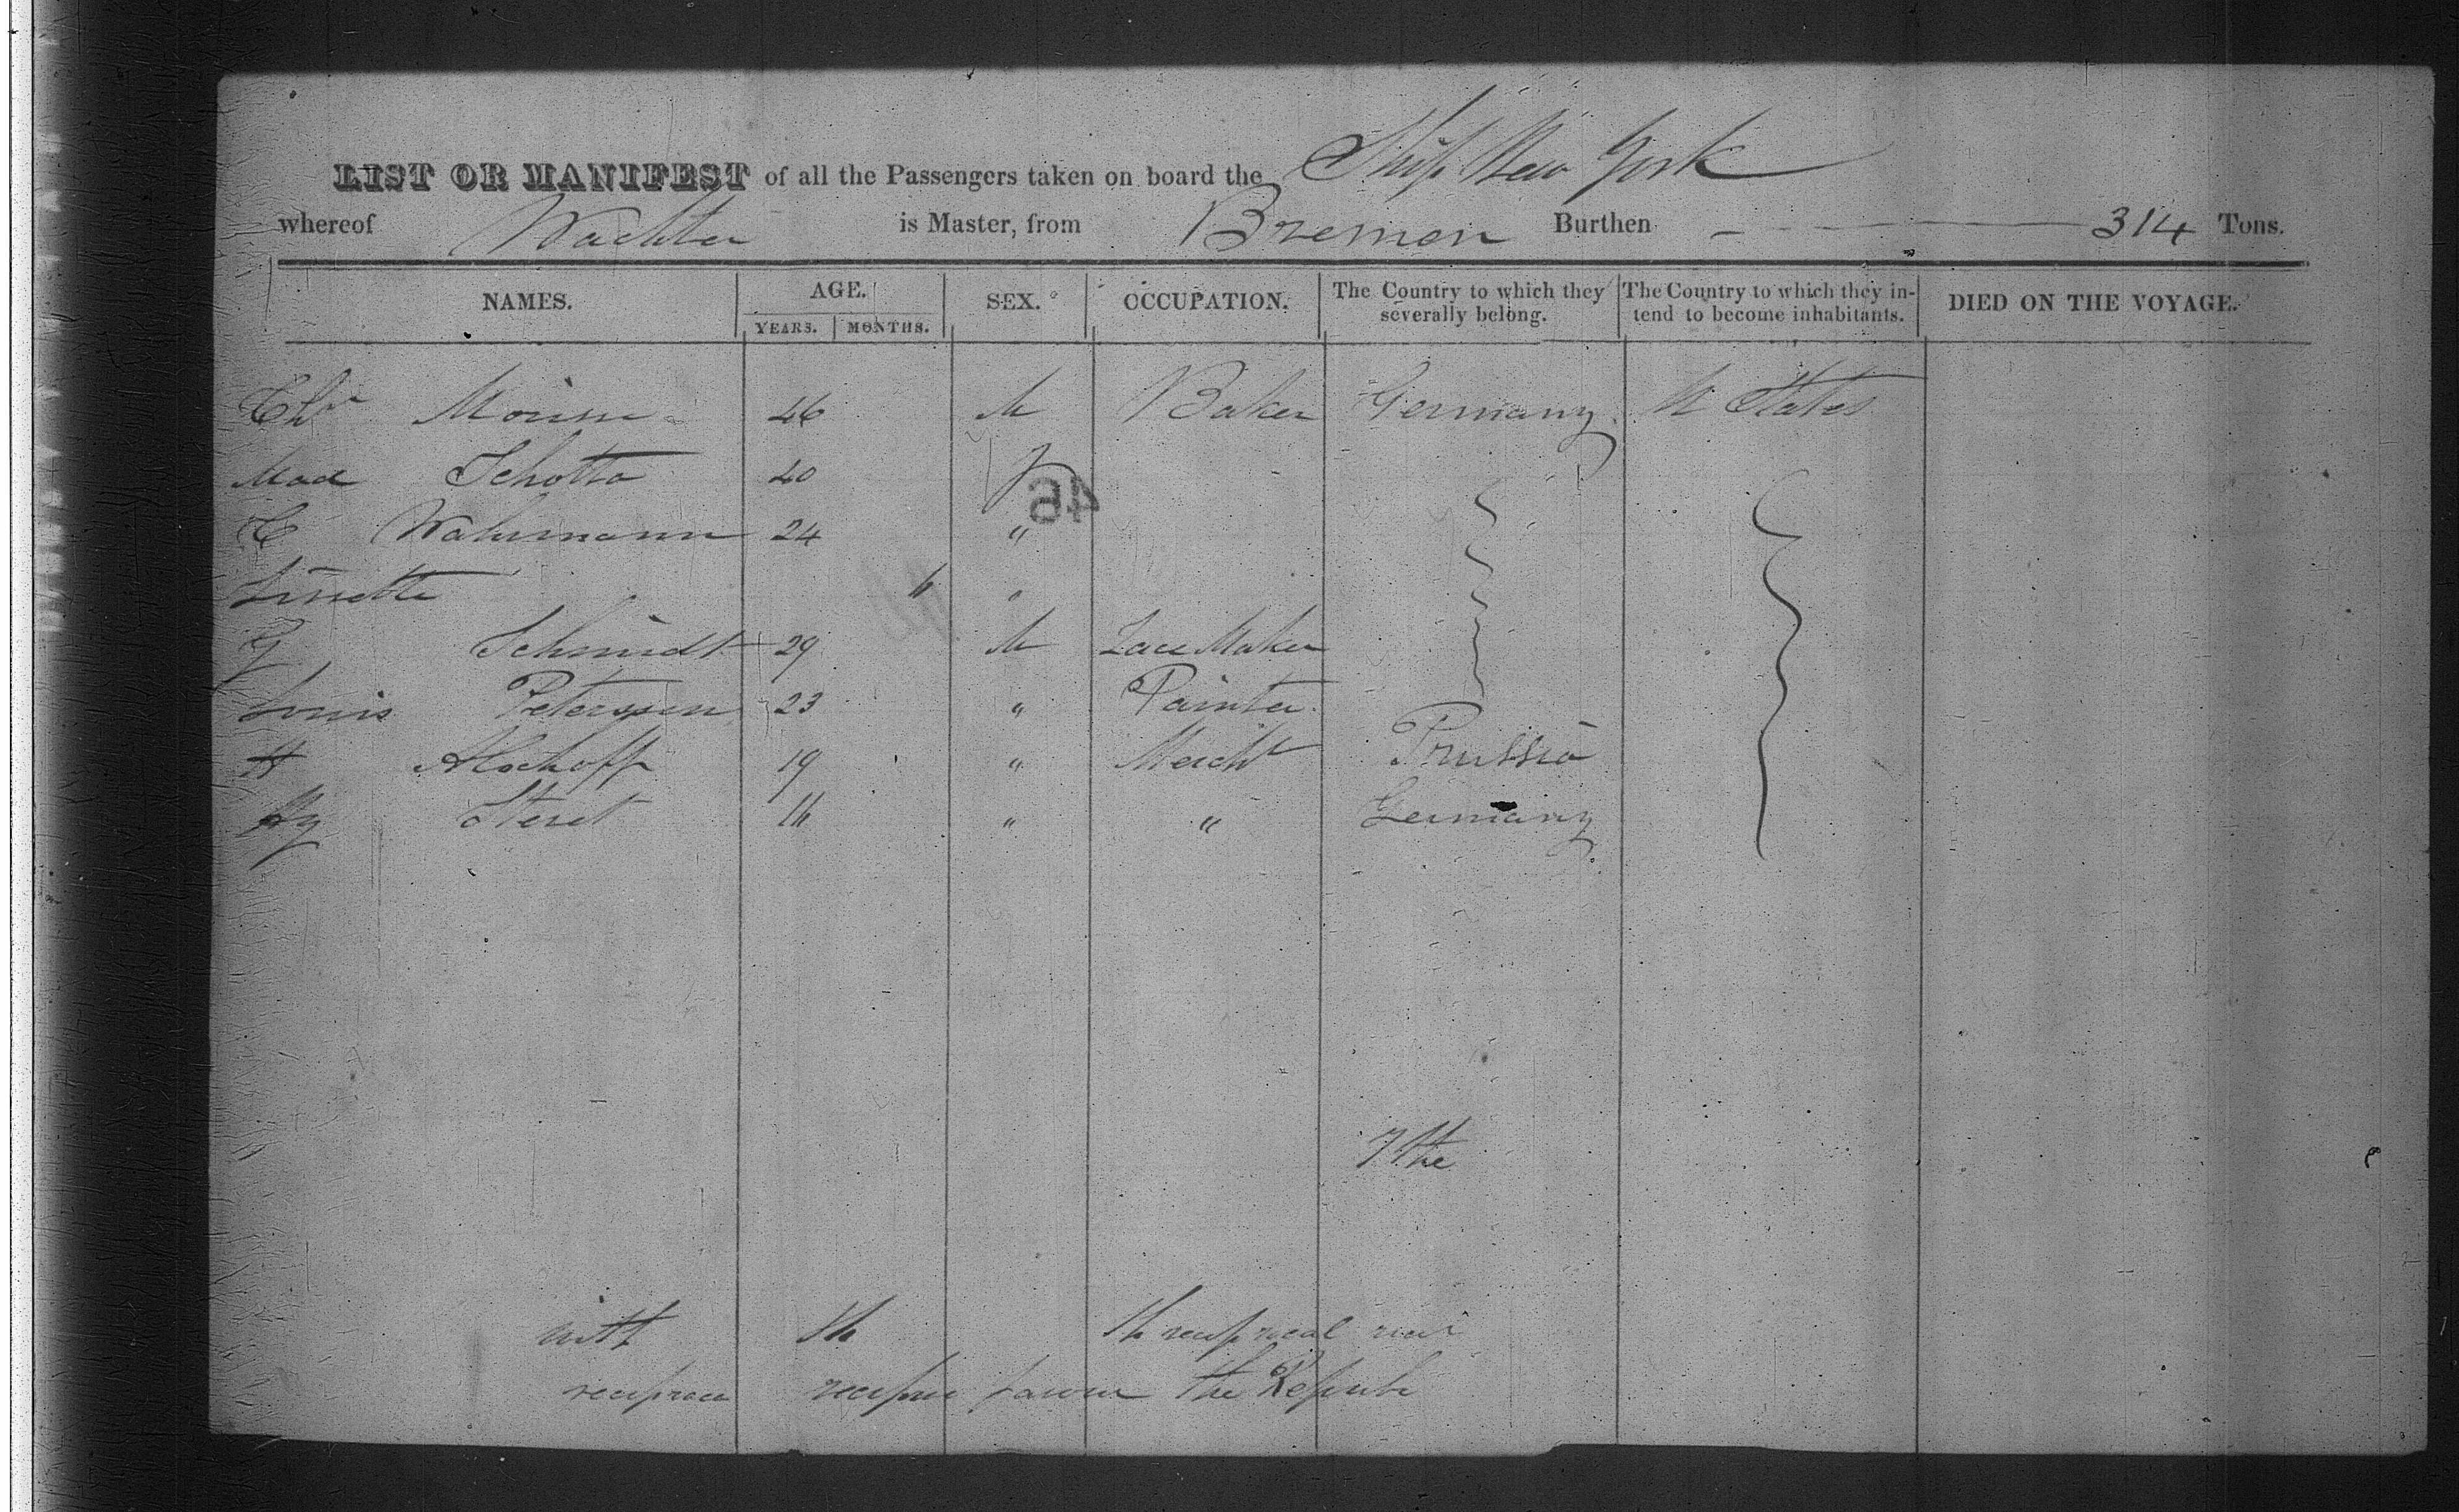 LIST OR MANIFEST of all the Passengers taken on board the Ship New York
whereof Wachter is Master, from Bremen Burthen 314 Tons.
NAMES. AGE. SEX. OCCUPATION. The Country to which they severally belong. The Country to which they intend to become inhabitants. DIED ON THE VOYAGE.
YEARS. MONTHS.
Chr 46 M Baker Germany U States
Mad Schotto 40 f
C Wahrmann 24 "
Linette "
G Schmidt 29 M Lace Maker
Louis Peterssen 23 " Painter
H 19 " Mercht Prussia
Hy " " Germany
46
7 the
with th th reciprocal
reciproca the Repub